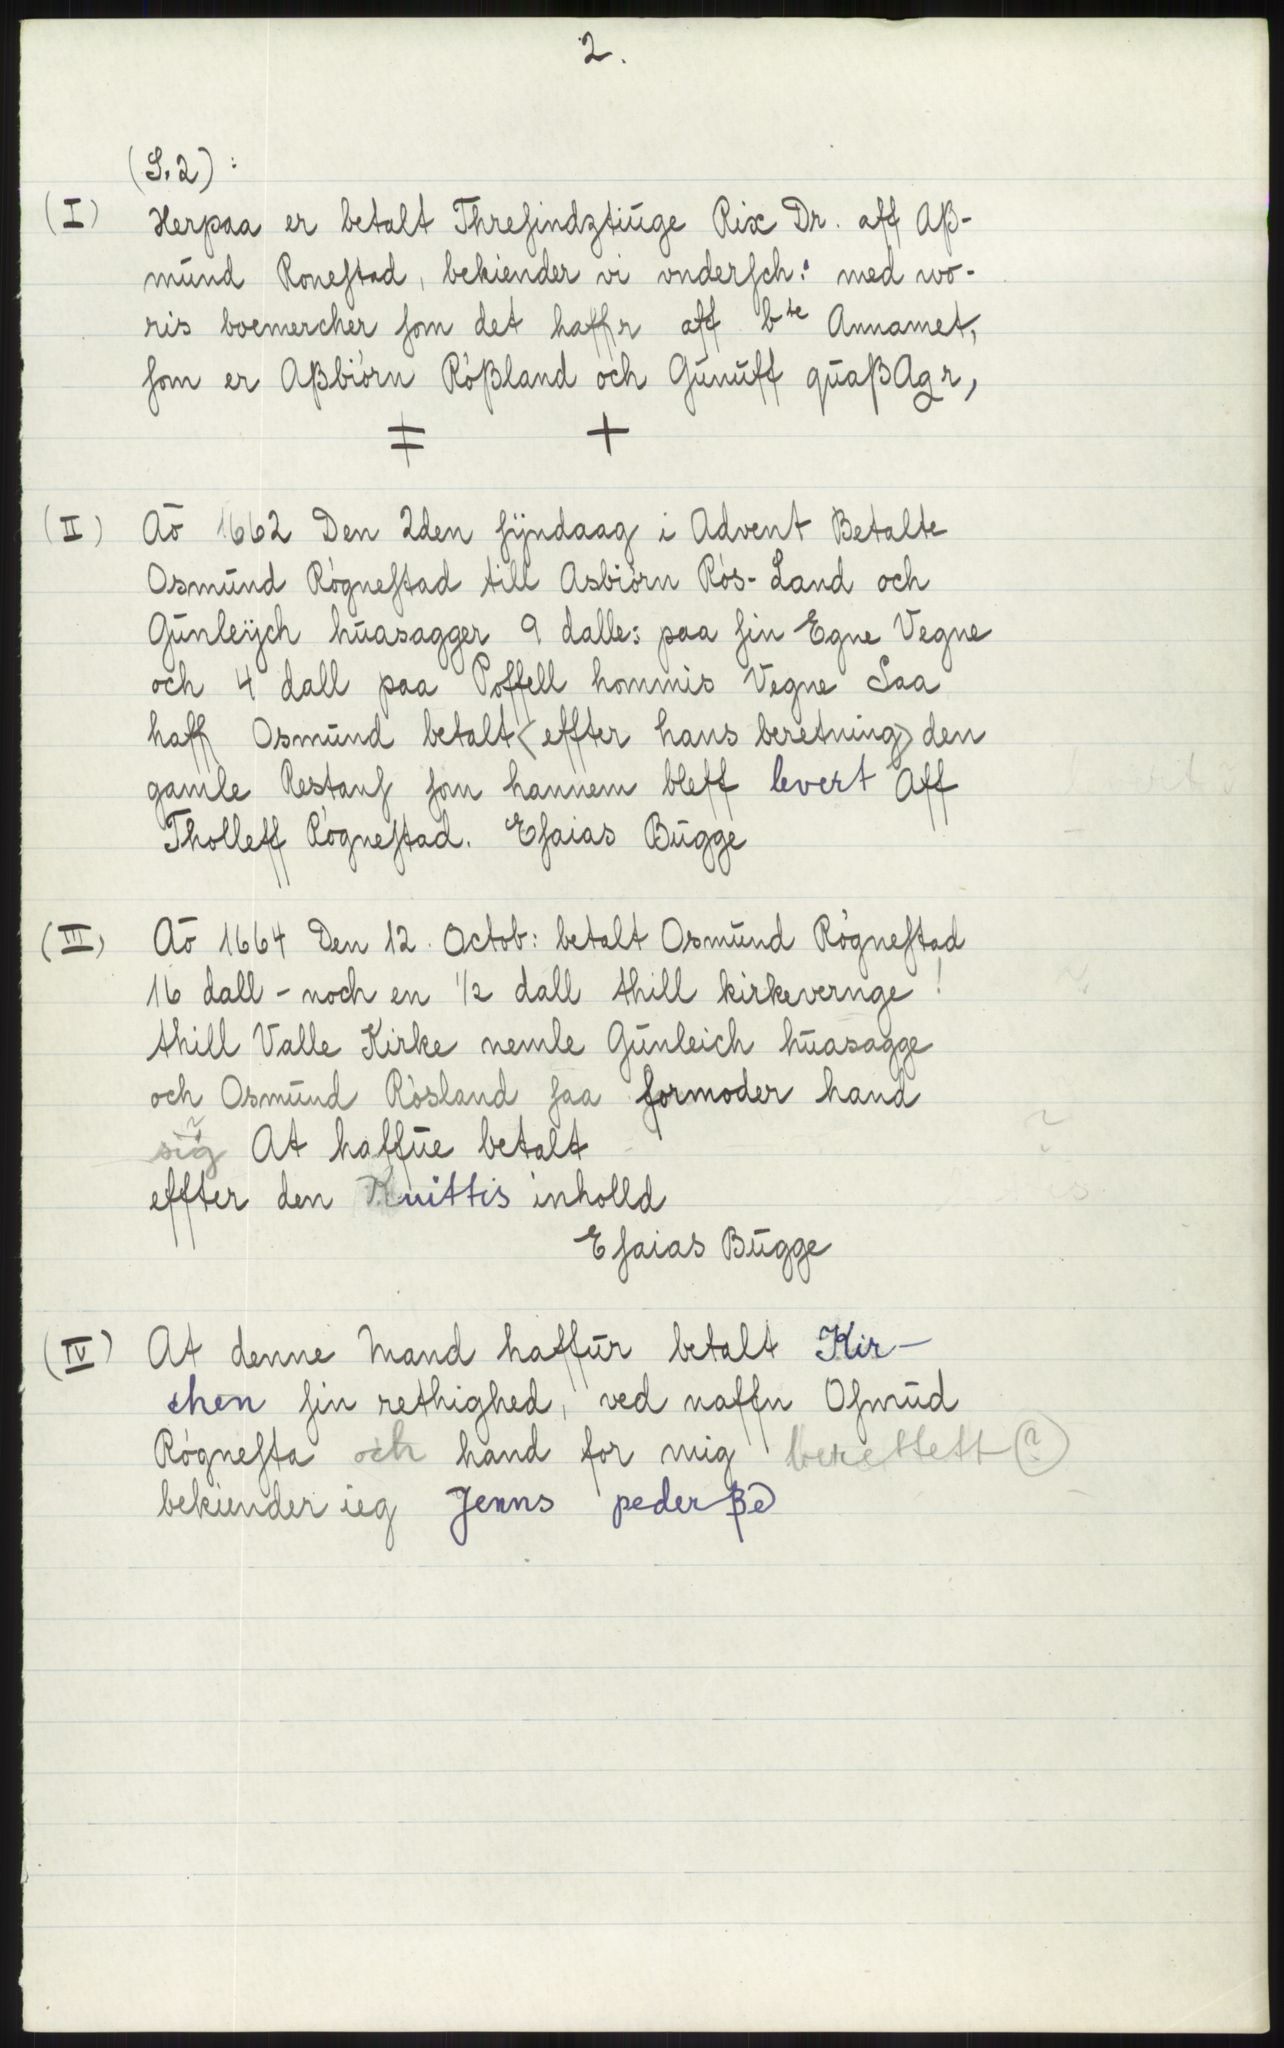 2.
(S.2):
(I) Herpaa er betalt Thresindztiuge Rix Dr. aff Aß-
mund Ronestad, bekiender vi vndersch: med wo-
ris boemercher som det haffr aff bte Annamet,
som er Aßbiórn Róßland och Gunuff quaßAgr,
ǂ +
(II) Aō 1662 Den 2den sÿndaag i Advent Betalte
Osmund Rógnestad till Asbiórn Rós-Land och
Gunleÿch huasagger 9 dalle: paa sin Egne Vegne
och 4 dall paa Poffell hommis Vegne Saa
haff Osmund betalt <effter hans beretning> den
gamle Restans som hannem bleff levert Aff
Tholleff Rógnestad. Esaias Bugge
(III) Aō 1664 Den 12. Octob: betalt Osmund Rógnestad
16 dall - noch en 1/2 dall thill kirkevernge !
thill Valle Kirke nemle Gunleich huasagge
och Osmund Rósland saa formoder hand
sig ? At haffue betalt
effter den Kuittis inholld
Esaias Bugge
(IV) At denne Mand haffur betalt Kir-
chen sin rethighed, ved naffn Osmud
Rógnesta och hand for mig berettett (?)
bekiender ieg Jenns peder ße